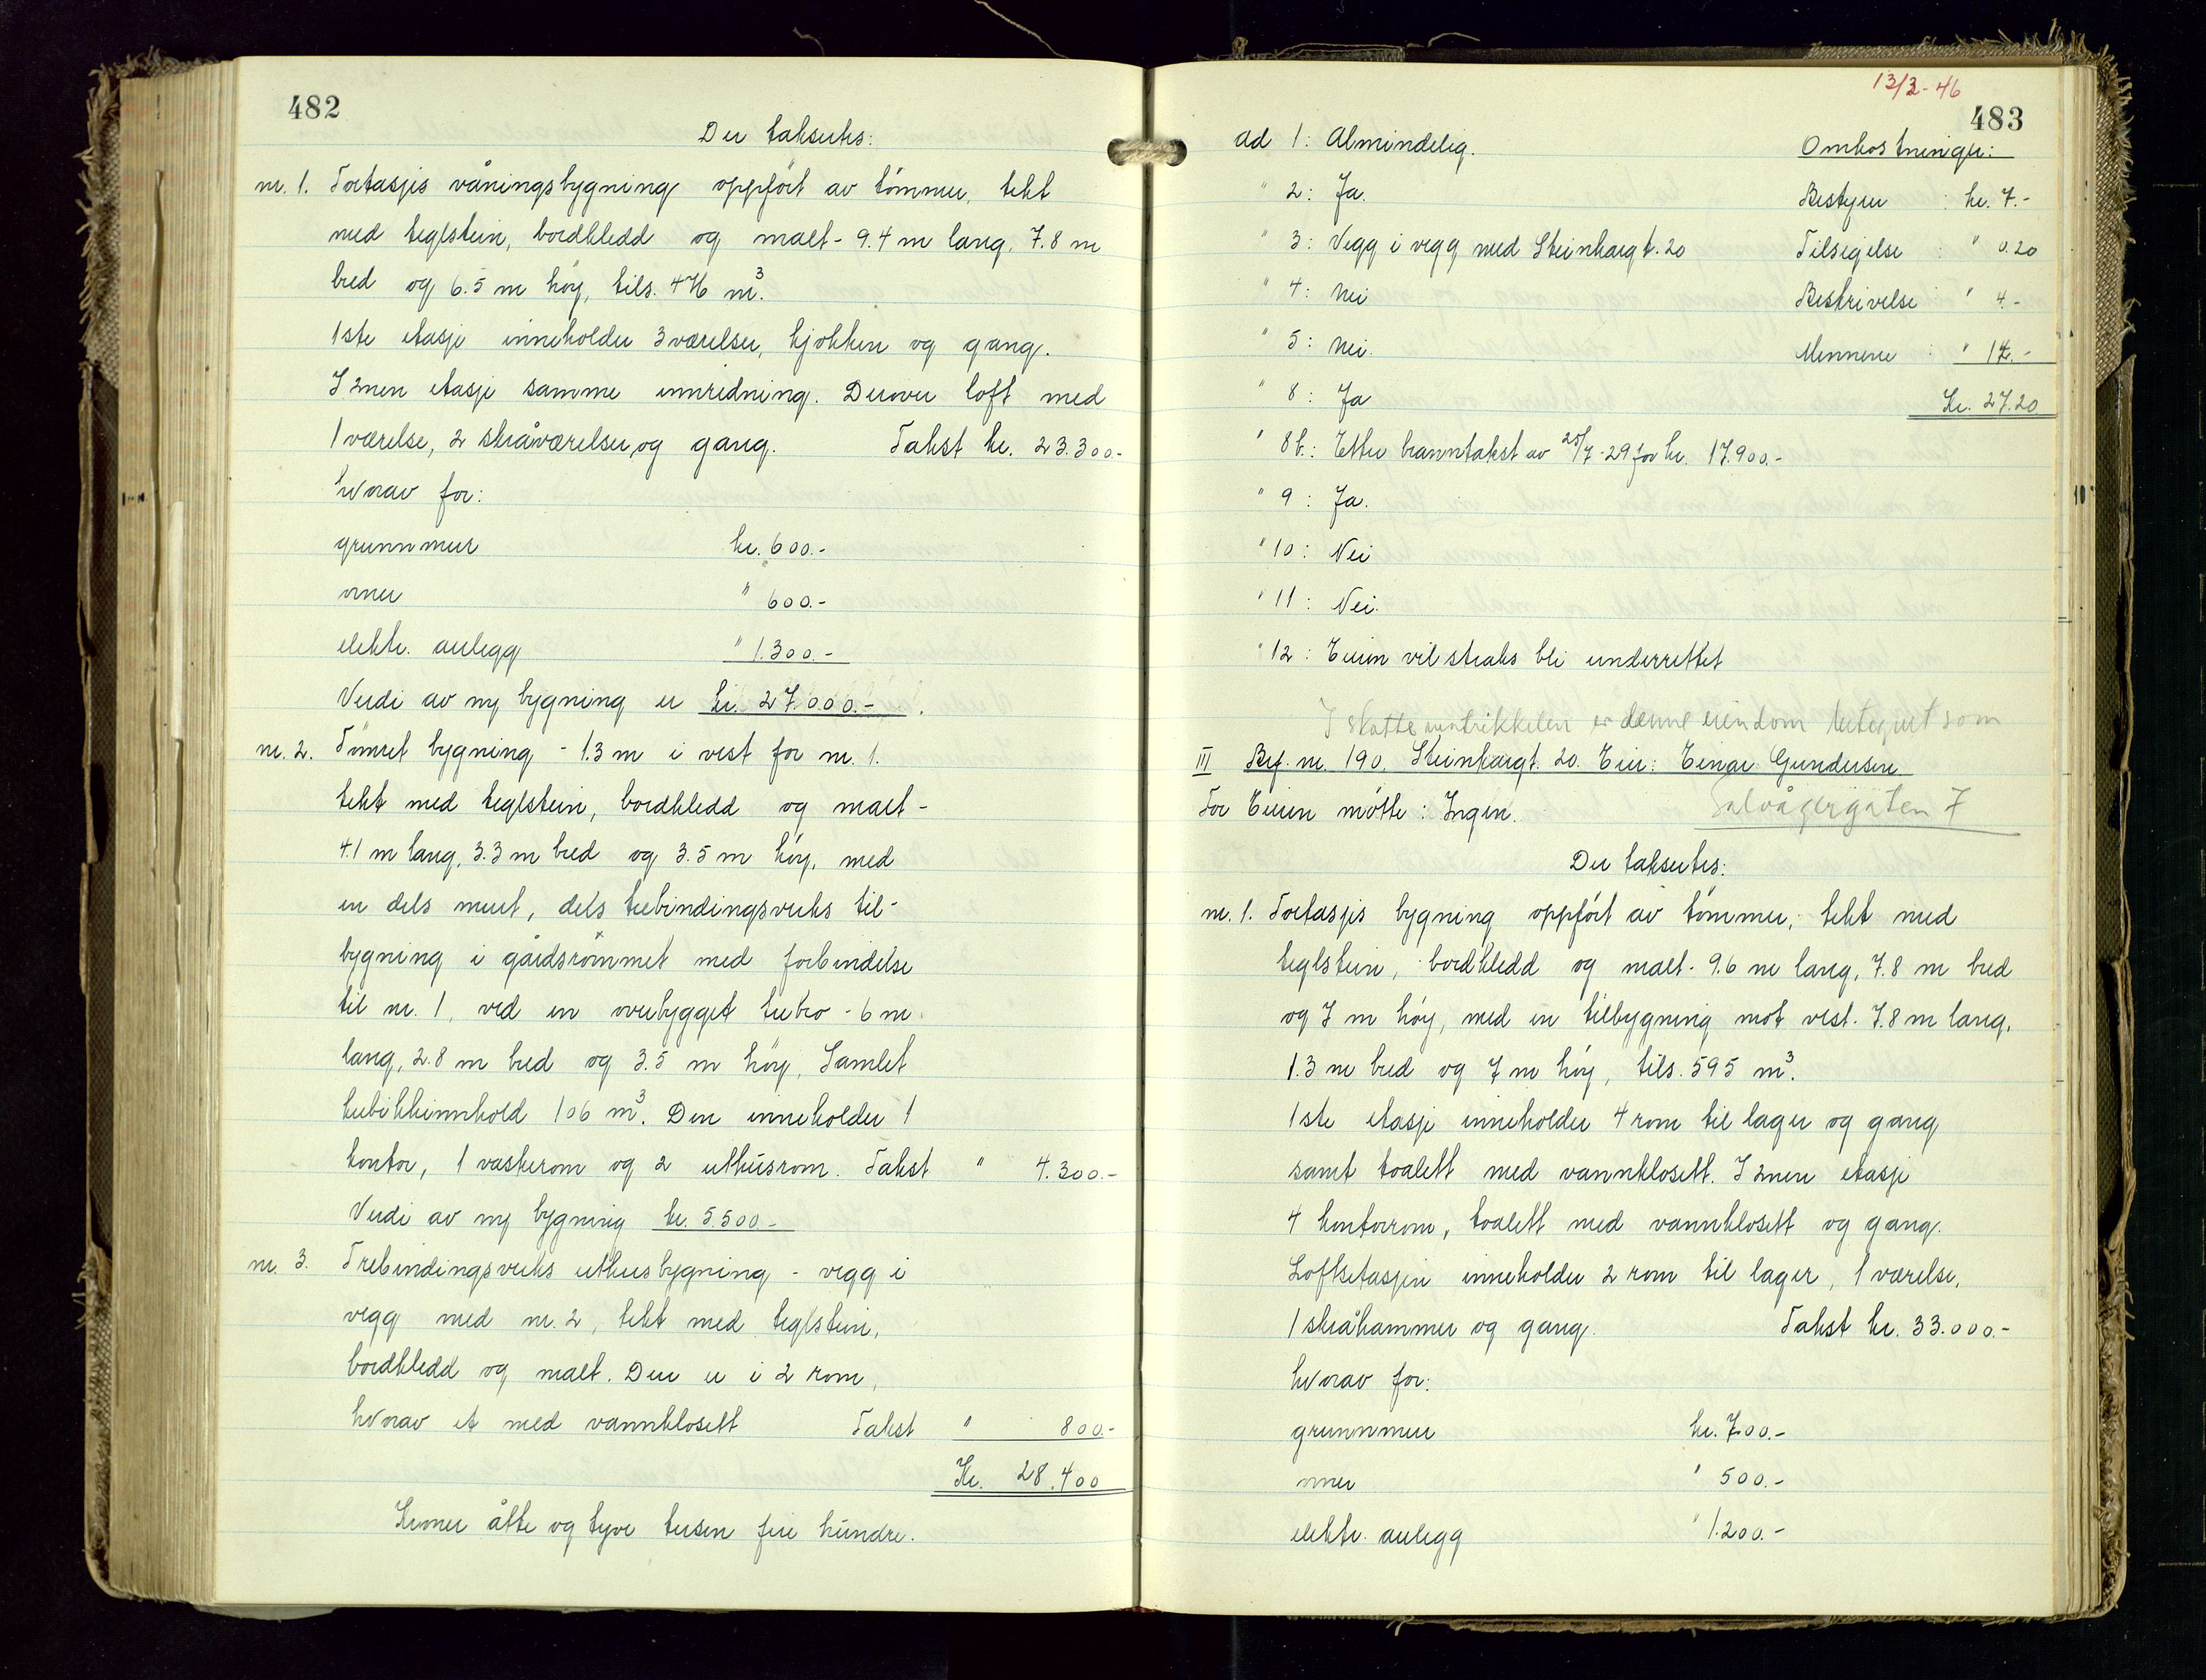 482
Der takseres:
nr. 1. Toetasjes våningsbygning oppført av tømmer, tekt
med teglstein, bordkledd og malt - 9.4 m lang, 7.8 m
bred og 6.5 m høy, tils. 476 m³.
1ste etasje inneholder 3 værelser, kjøkken og gang.
I 2nen etasje samme innredning. Derover loft med
1 værelse, 2 skråværelser, og gang. Takst kr. 23.300.-
hvorav for:
grunnmur kr. 600.-
ovner " 600.-
elektr. anlegg " 1.300.-
Verdi av ny bygning er kr. 27.000.-.
nr. 2. Tømret bygning - 1.3 m i vest for nr. 1.
tekt med teglstein, bordkledd og malt -
4.1 m lang, 3.3 m bred og 3.5 m høy, med
en dels muret, dels trebindingsverks til-
bygning i gårdsrommet med forbindelse
til nr. 1, ved en overbygget trebro - 6 m
lang, 2.8 m bred og 3.5 m høy. Samlet
kubikkinnhold 106 m³. Den inneholder 1
kontor, 1 vaskerom og 2 uthusrom. Takst " 4.300.-
Verdi av ny bygning kr. 5.500.-
nr. 3. Trebindingsverks uthusbygning - vegg i
vegg med nr. 2, tekt med teglstein,
bordkledd og malt. Den er i 2 rom,
hvorav et med vannklosett Takst " 800.-
Kr. 28.400
Kroner åtte og tyve tusen fire hundre.
13/3-46
483
ad 1: Almindelig. Omkostninger:
" 2: Ja. Bestyrer : kr. 7.-
" 3: Vegg i vegg med Steinkargt. 20 Tilsigelse : " 0.20
" 4: Nei Beskrivelse " 4.-
" 5: Nei. Mennene : " 12.-
" 8: Ja Kr. 27.20
" 8b.: Etter branntakst av 25/7-29 for kr. 17.900.-
" 9: Ja.
" 10: Nei
" 11: Nei.
" 12: Eieren vil straks bli underrettet
I skattematrikkelen er denne eiendom betegnet som
III Brf. nr. 190. Steinkargt. 20. Eier: Einar Gundersen
For Eieren møtte: Ingen. Salvågergaten 7
Der takseres:
nr. 1. Toetasjes bygning oppført av tømmer, tekt med
teglstein, bordkledd og malt - 9.6 m lang, 7.8 m bred
og 7 m høy, med en tilbygning mot vest - 7.8 m lang,
1.3 m bred og 7 m høy, tils. 595 m³.
1ste etasje inneholder 4 rom til lager og gang
samt toalett med vannklosett. I 2nen etasje
4 kontorrom, toalett med vannklosett og gang.
Loftsetasjen inneholder 2 rom til lager, 1 værelse,
1 skråkammer og gang. Takst kr. 33.000.-
hvorav for:
grunnmur kr. 700.-
ovner " 500.-
elektr. anlegg " 1.200.-